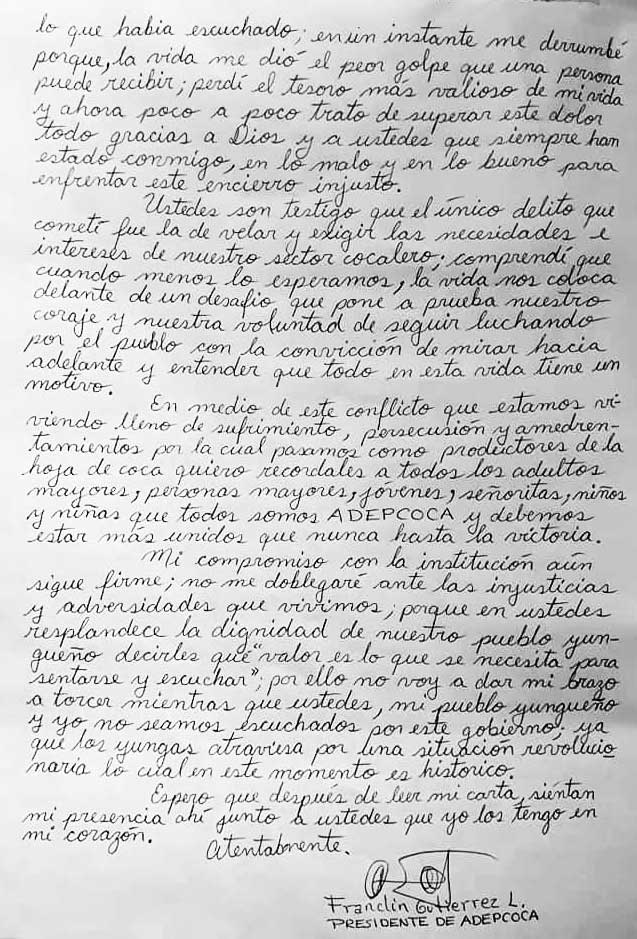 lo que habia escuchado; en un instante me derrumbé
porque, la vida me dió el peor golpe que una persona
puede recibir; perdí el tesoro más valioso de mi vida
y ahora poco a poco trato de superar este dolor
todo gracias a Dios y a ustedes que siempre han
estado conmigo, en lo malo y en lo bueno para
enfrentar este encierro injusto.
Ustedes son testigo que el único delito que
cometí fue la de velar y exigir las necesidades e
intereses de nuestro sector cocalero; comprendí que
cuando menos lo esperamos, la vida nos coloca
delante de un desafio que pone a prueba nuestro
coraje y nuestra voluntad de seguir luchando
por el pueblo con la convicción de mirar hacia
adelante y entender que todo en esta vida tiene un
motivo.
En medio de este conflicto que estamos vi-
viendo lleno de sufrimiento, persecusión y amedren-
tamientos por la cual pasamos como productores de la
hoja de coca quiero recordales a todos los adultos
mayores, personas mayores, jóvenes, señoritas, niños
y niñas que todos somos ADEPCOCA y debemos
estar más unidos que nunca hasta la victoria.
Mi compromiso con la institución aún
sigue firme; no me doblegaré ante las injusticias
y adversidades que vivimos; porque en ustedes
resplandece la dignidad de nuestro pueblo yun-
gueño decirles qué "valor es lo que se necesita para
sentarse y escuchar"; por ello no voy a dar mi brazo
a torcer mientras que ustedes, mi pueblo yungueño
y yo no seamos escuchados por este gobierno; ya
que los yungas atraviesa por una situación revolucio
naria lo cual en este momento es histórico.
Espero que después de leer mi carta, sientan
mi presencia ahí junto a ustedes que yo los tengo en
mi corazón.
Atentabmente.
Franclin Gutierrez L.
PRESIDENTE DE ADEPCOCA